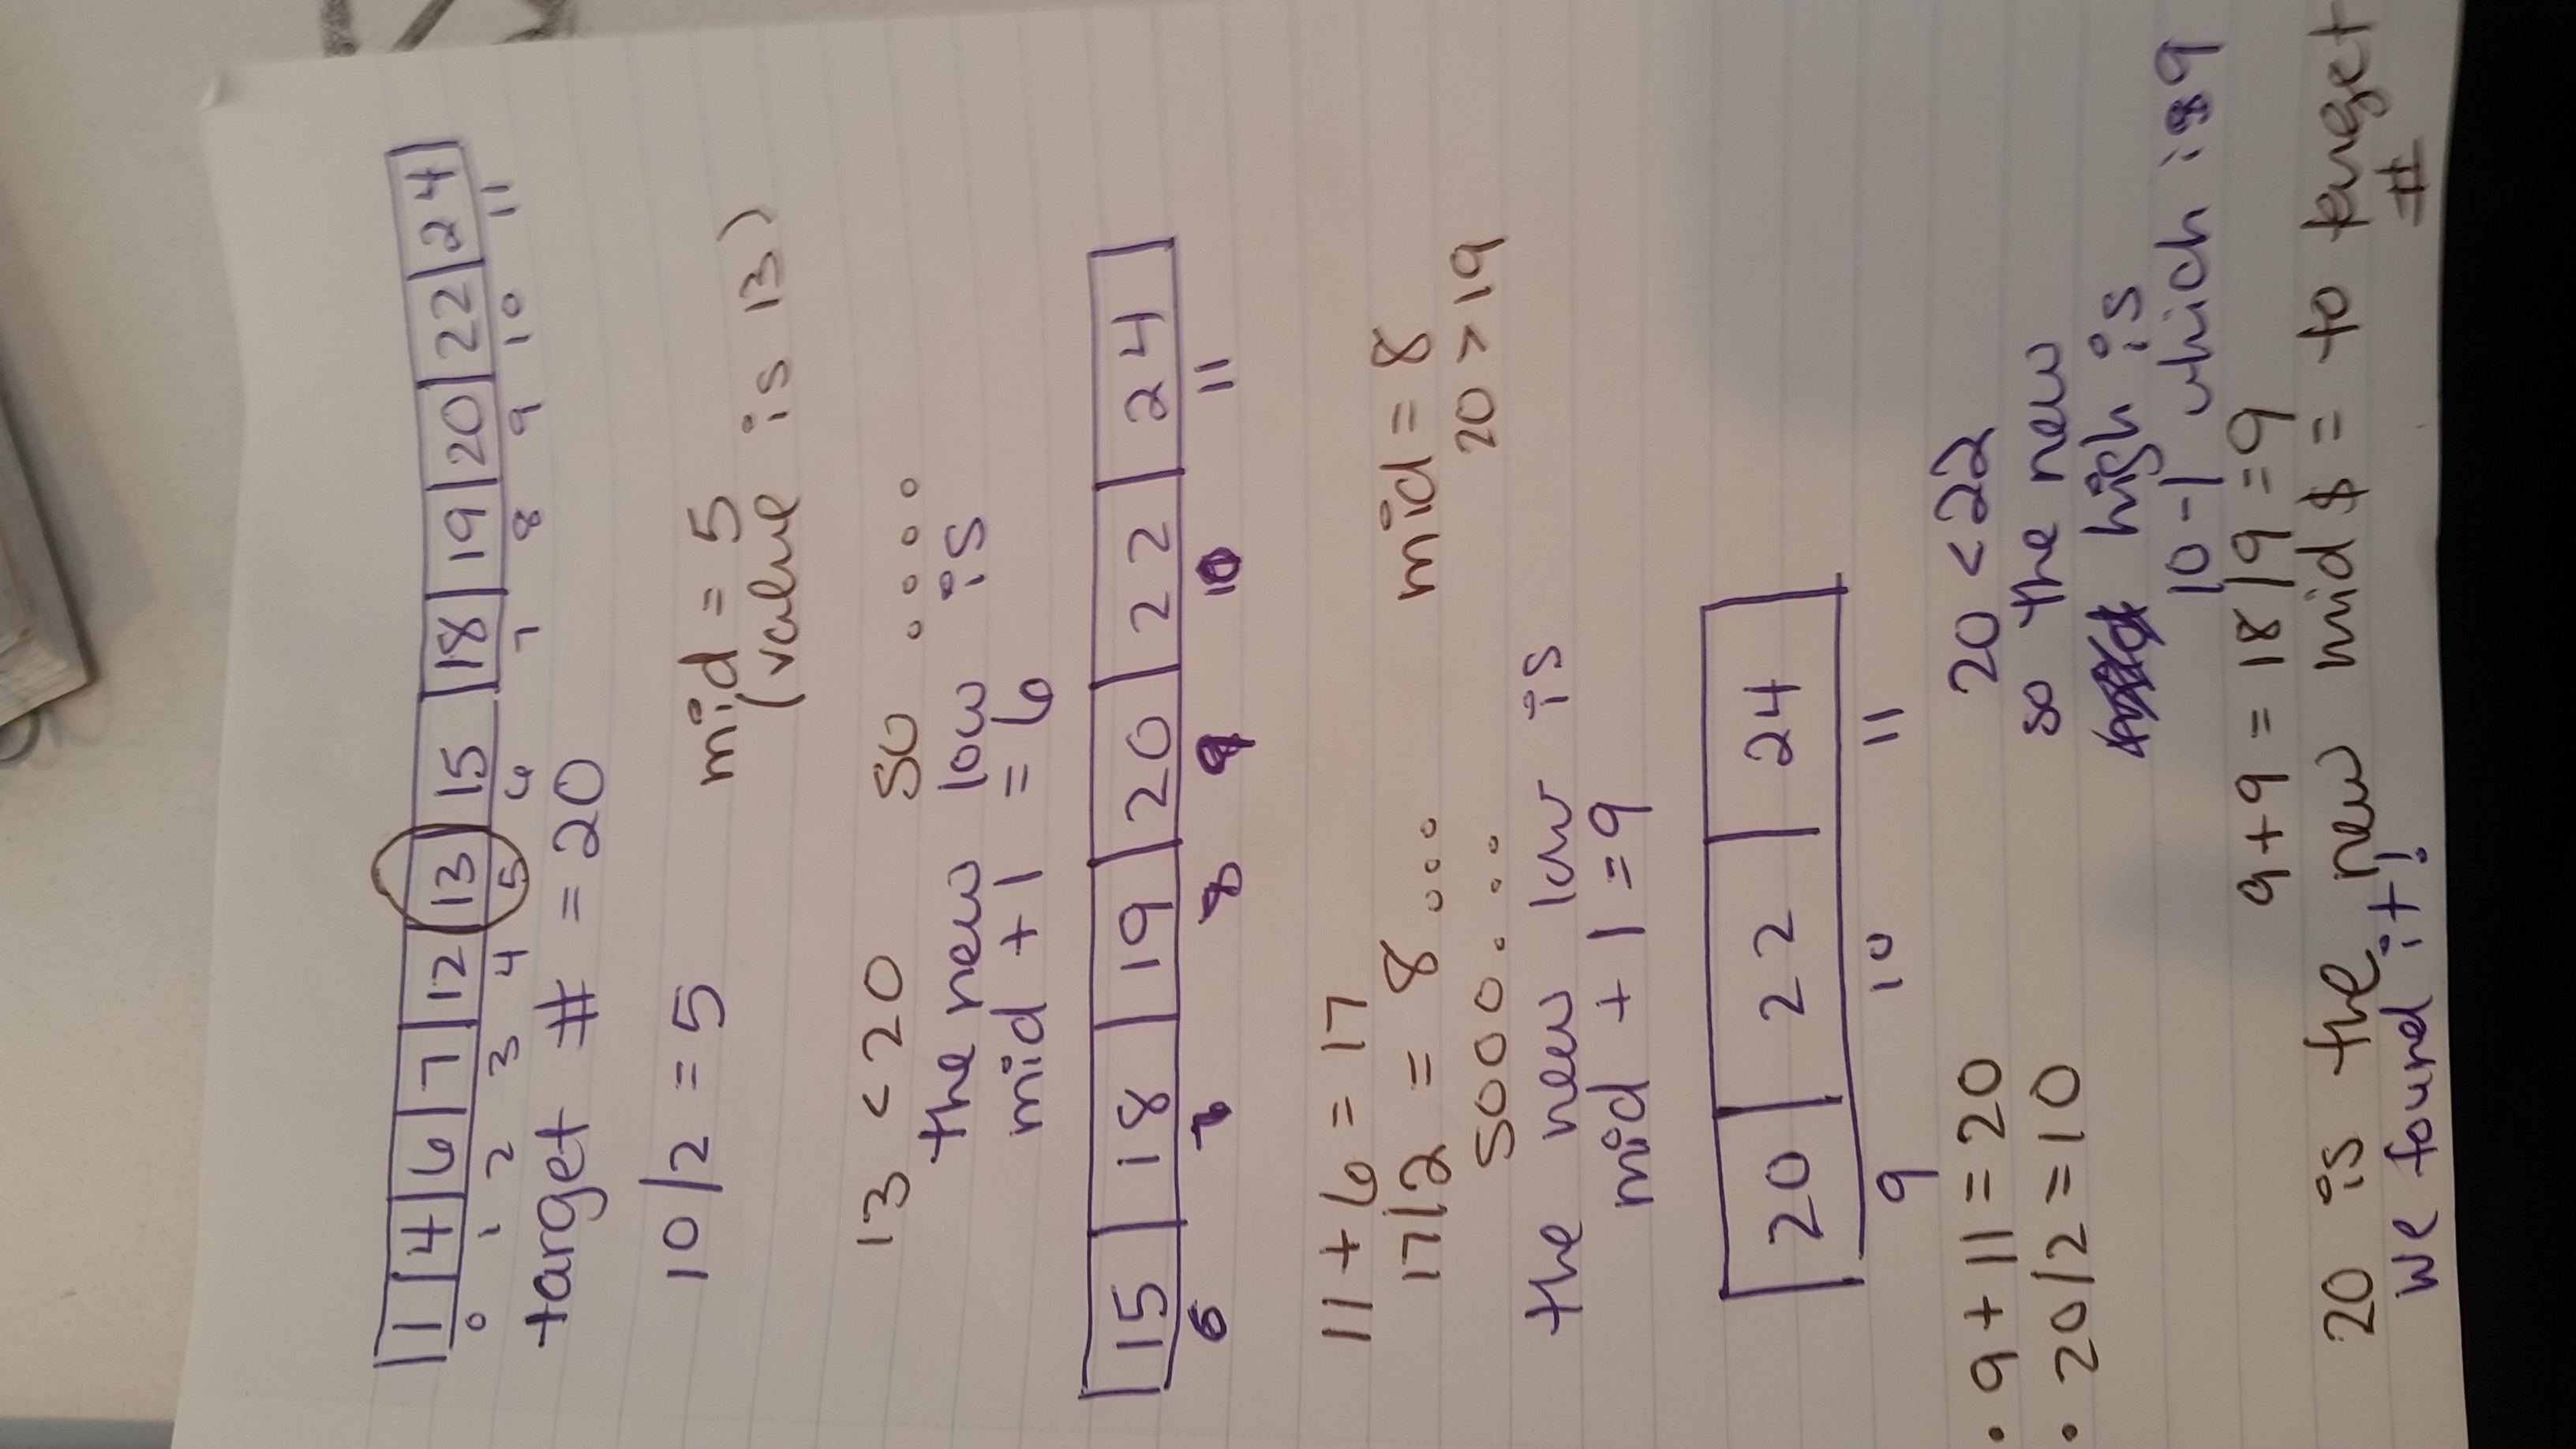 1 4 6 7 12 13 15 18 19 20 22 24
0 1 2 3 4 5 6 7 8 9 10 11
target # = 20
10/2 = 5
mid = 5
(value is 13)
13 < 20 so ....
the new low is
mid + 1 = 6
15 18 19 20 22 24
6 7 8 9 10 11
11 + 6 = 17
17/2 = 8...
mid = 8
20 > 19
5000...
the new low is
mid + 1 = 9
20 22 24
9 10 11
• 9 + 11 = 20
• 20/2 = 10
20 < 22
so the new
high is
10-1 which is 9
9+9 = 18/9 = 9
20 is the new mid $ = to target
#
we found it!